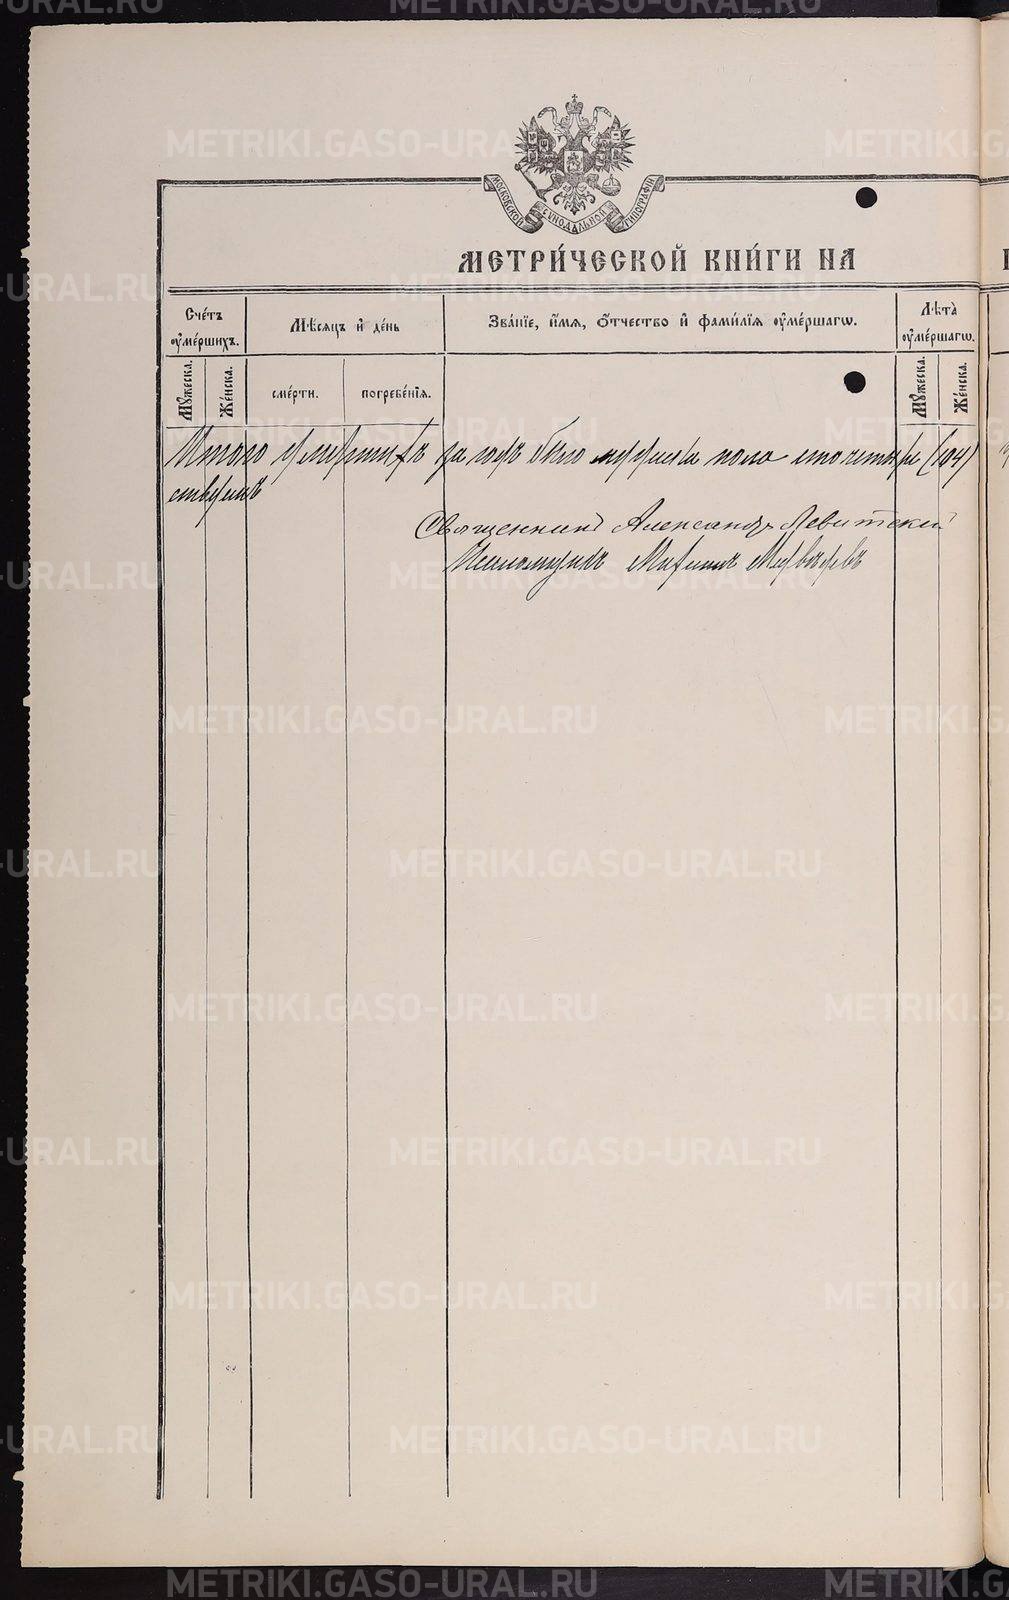 METRIKI.GASO-URAL.RU
МОСКОВСКОЙ СѴНОДАЛЬНОЙ ТИПОГРАФІИ
МЕТРИ́ЧЕСКОЙ КНИ́ГИ НА
Сче́тъ оумє́ршихъ.
Мѣсяцъ и҆ де́нь
Зва́нїе, и҆́мѧ, ѻ҆́тчество и҆ фами́лїѧ оумє́ршагѡ.
Лѣта̀ оумє́ршагѡ.
Мꙋ́жеска.
Же́нска.
сме́рти.
погребе́нїѧ.
Мꙋ́жеска.
Же́нска.
Итого умершихъ за годъ было мужеска пола сто четыре (104)
Священникъ Александръ Левитскій
Псаломщикъ